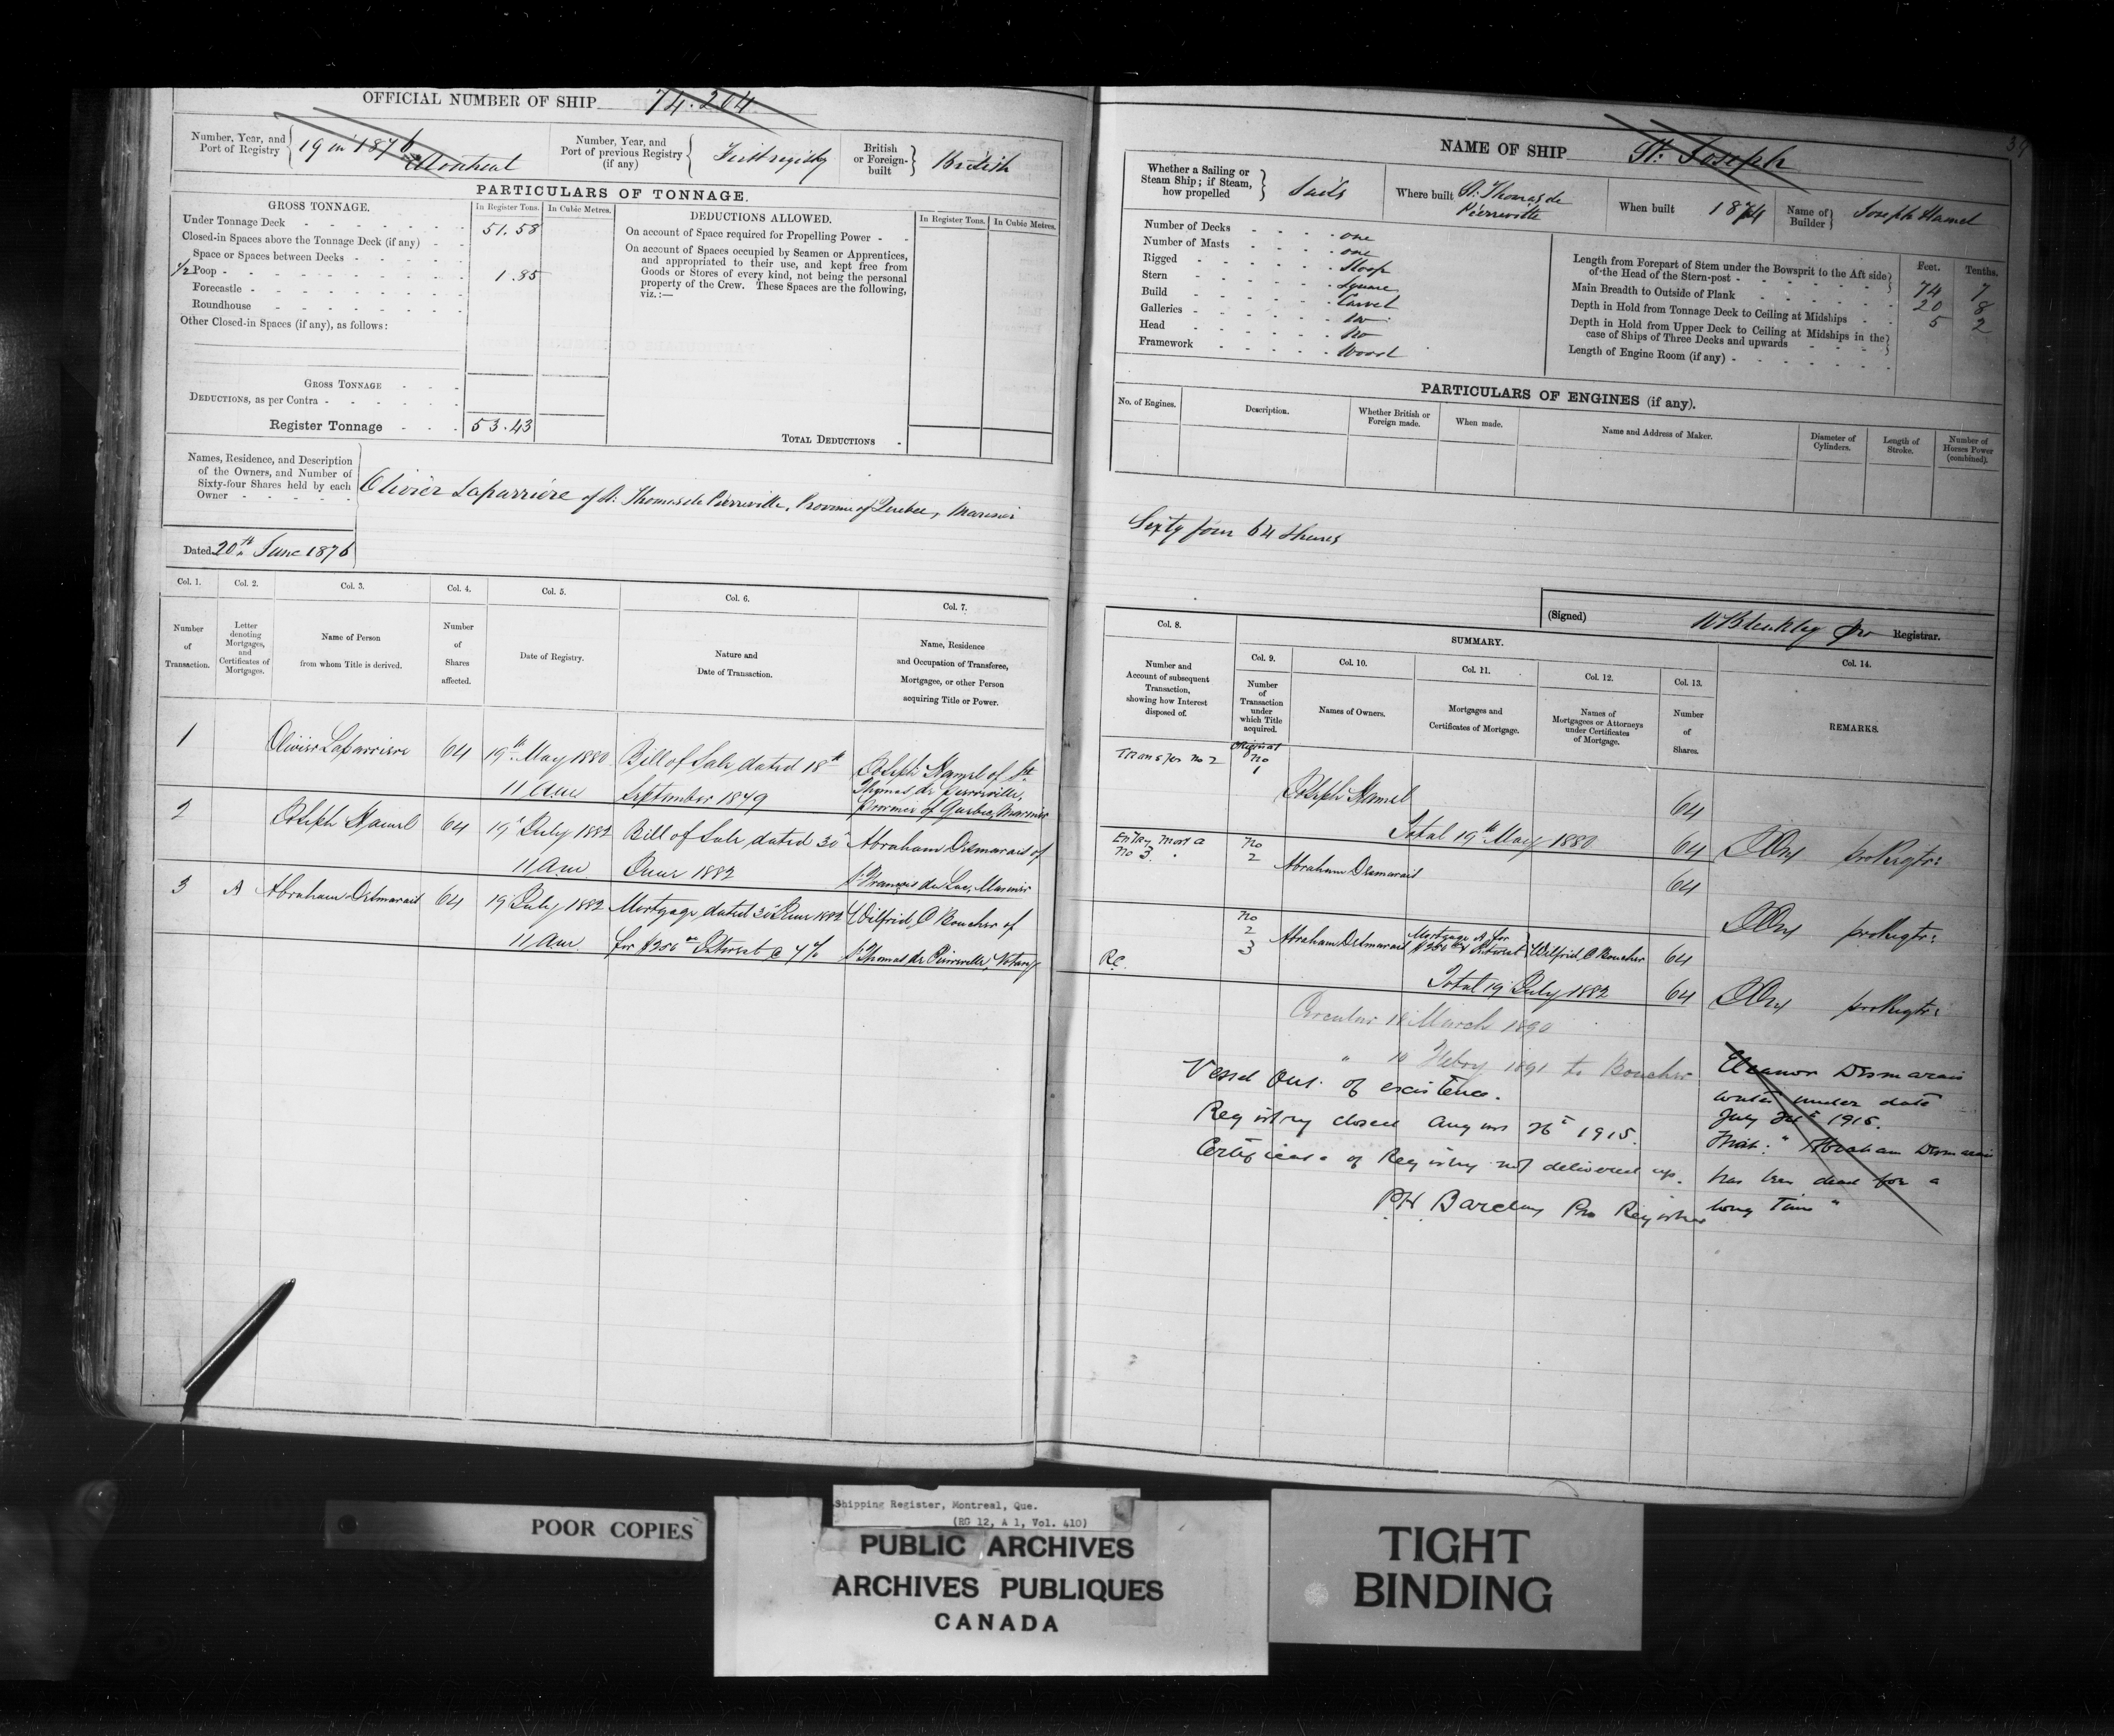 OFFICIAL NUMBER OF SHIP 74.204
Number, Year, and Port of Registry
19 in 1876
Montreal
Number, Year, and Port of previous Registry (if any)
First registry
British or Foreign-built
British
PARTICULARS OF TONNAGE.
GROSS TONNAGE.
In Register Tons.
In Cubic Metres.
DEDUCTIONS ALLOWED.
In Register Tons.
In Cubic Metres.
Under Tonnage Deck - 51.58
Closed-in Spaces above the Tonnage Deck (if any) -
Space or Spaces between Decks -
1/2 Poop - 1.85
Forecastle -
Roundhouse -
Other Closed-in Spaces (if any), as follows:
GROSS TONNAGE
DEDUCTIONS, as per Contra -
Register Tonnage - 53.43
On account of Space required for Propelling Power -
On account of Spaces occupied by Seamen or Apprentices,
and appropriated to their use, and kept free from
Goods or Stores of every kind, not being the personal
property of the Crew. These Spaces are the following,
viz.:—
TOTAL DEDUCTIONS -
Names, Residence, and Description
of the Owners, and Number of
Sixty-four Shares held by each
Owner -
Olivier Laparriére of St. Thomas de Pierreville, Province of Quebec, Mariner
Dated 20th June 1876
Col. 1.
Col. 2.
Col. 3.
Col. 4.
Col. 5.
Col. 6.
Col. 7.
Number of Transaction.
Letter denoting Mortgages, and Certificates of Mortgages.
Name of Person from whom Title is derived.
Number of Shares affected.
Date of Registry.
Nature and Date of Transaction.
Name, Residence and Occupation of Transferee, Mortgagee, or other Person acquiring Title or Power.
1 Olivier Laparriere 64 19th May 1880 Bill of Sale dated 18th Joseph Hamel of St
11 a.m. September 1879 Thomas de Pierreville,
Province of Quebec, Mariner
2 Joseph Hamel 64 19 July 1882 Bill of Sale dated 30 Abraham Desmarais of
11 am June 1882 St François du Lac, Mariner
3 A Abraham Desmarais 64 19 July 1882 Mortgage dated 30 June 1882 Wilfrid O Boucher of
11 am for Interest @ 7% St Thomas de Pierreville, Notary
NAME OF SHIP St. Joseph
34
Whether a Sailing or Steam Ship; if Steam, how propelled
Sails
Where built
St. Thomas de
Pierreville
When built 1874
Name of Builder
Joseph Hamel
Number of Decks - one
Number of Masts - one
Rigged - Sloop
Stern - Square
Build - Carvel
Galleries - No
Head - No
Framework - Wood
Feet.
Tenths.
Length from Forepart of Stem under the Bowsprit to the Aft side
of the Head of the Stern-post - 74 7
Main Breadth to Outside of Plank 20 8
Depth in Hold from Tonnage Deck to Ceiling at Midships 5 2
Depth in Hold from Upper Deck to Ceiling at Midships in the
case of Ships of Three Decks and upwards
Length of Engine Room (if any) -
PARTICULARS OF ENGINES (if any).
No. of Engines.
Description.
Whether British or Foreign made.
When made.
Name and Address of Maker.
Diameter of Cylinders.
Length of Stroke.
Number of Horses Power (combined).
Sixty four 64 Shares
(Signed) W Bleakley pro Registrar.
Col. 8.
SUMMARY.
Col. 9.
Col. 10.
Col. 11.
Col. 12.
Col. 13.
Col. 14.
Number and Account of subsequent Transaction, showing how Interest disposed of.
Number of Transaction under which Title acquired.
Names of Owners.
Mortgages and Certificates of Mortgage.
Names of Mortgagees or Attorneys under Certificates of Mortgage.
Number of Shares.
REMARKS.
Transfer No 2
Original
No
1
Joseph Hamel 64
Total 19th May 1880 64 pro Regtr:
Entry Mort A
No 3.
No
2 Abraham Desmarais 64
pro Regtr:
No
2
3 Abraham Desmarais Mortgage A for
Interest Wilfrid O Boucher 64
R.C.
Total 19 July 1882 64 pro Regtr:
Circular 18 March 1890
" 10 Feby 1891 to Boucher
Vessel Out of existence.
Registry closed August 26th 1915.
Certificate of Registry not delivered up.
P.H. Barclay Pro Registrar
Eleanor Desmarais
writes under date
July 1915.
that: "Abraham Desmarais
has been dead for a
long time"
POOR COPIES
Shipping Register, Montreal, Que.
(RG 12, A 1, Vol. 410)
PUBLIC ARCHIVES
ARCHIVES PUBLIQUES
CANADA
TIGHT
BINDING